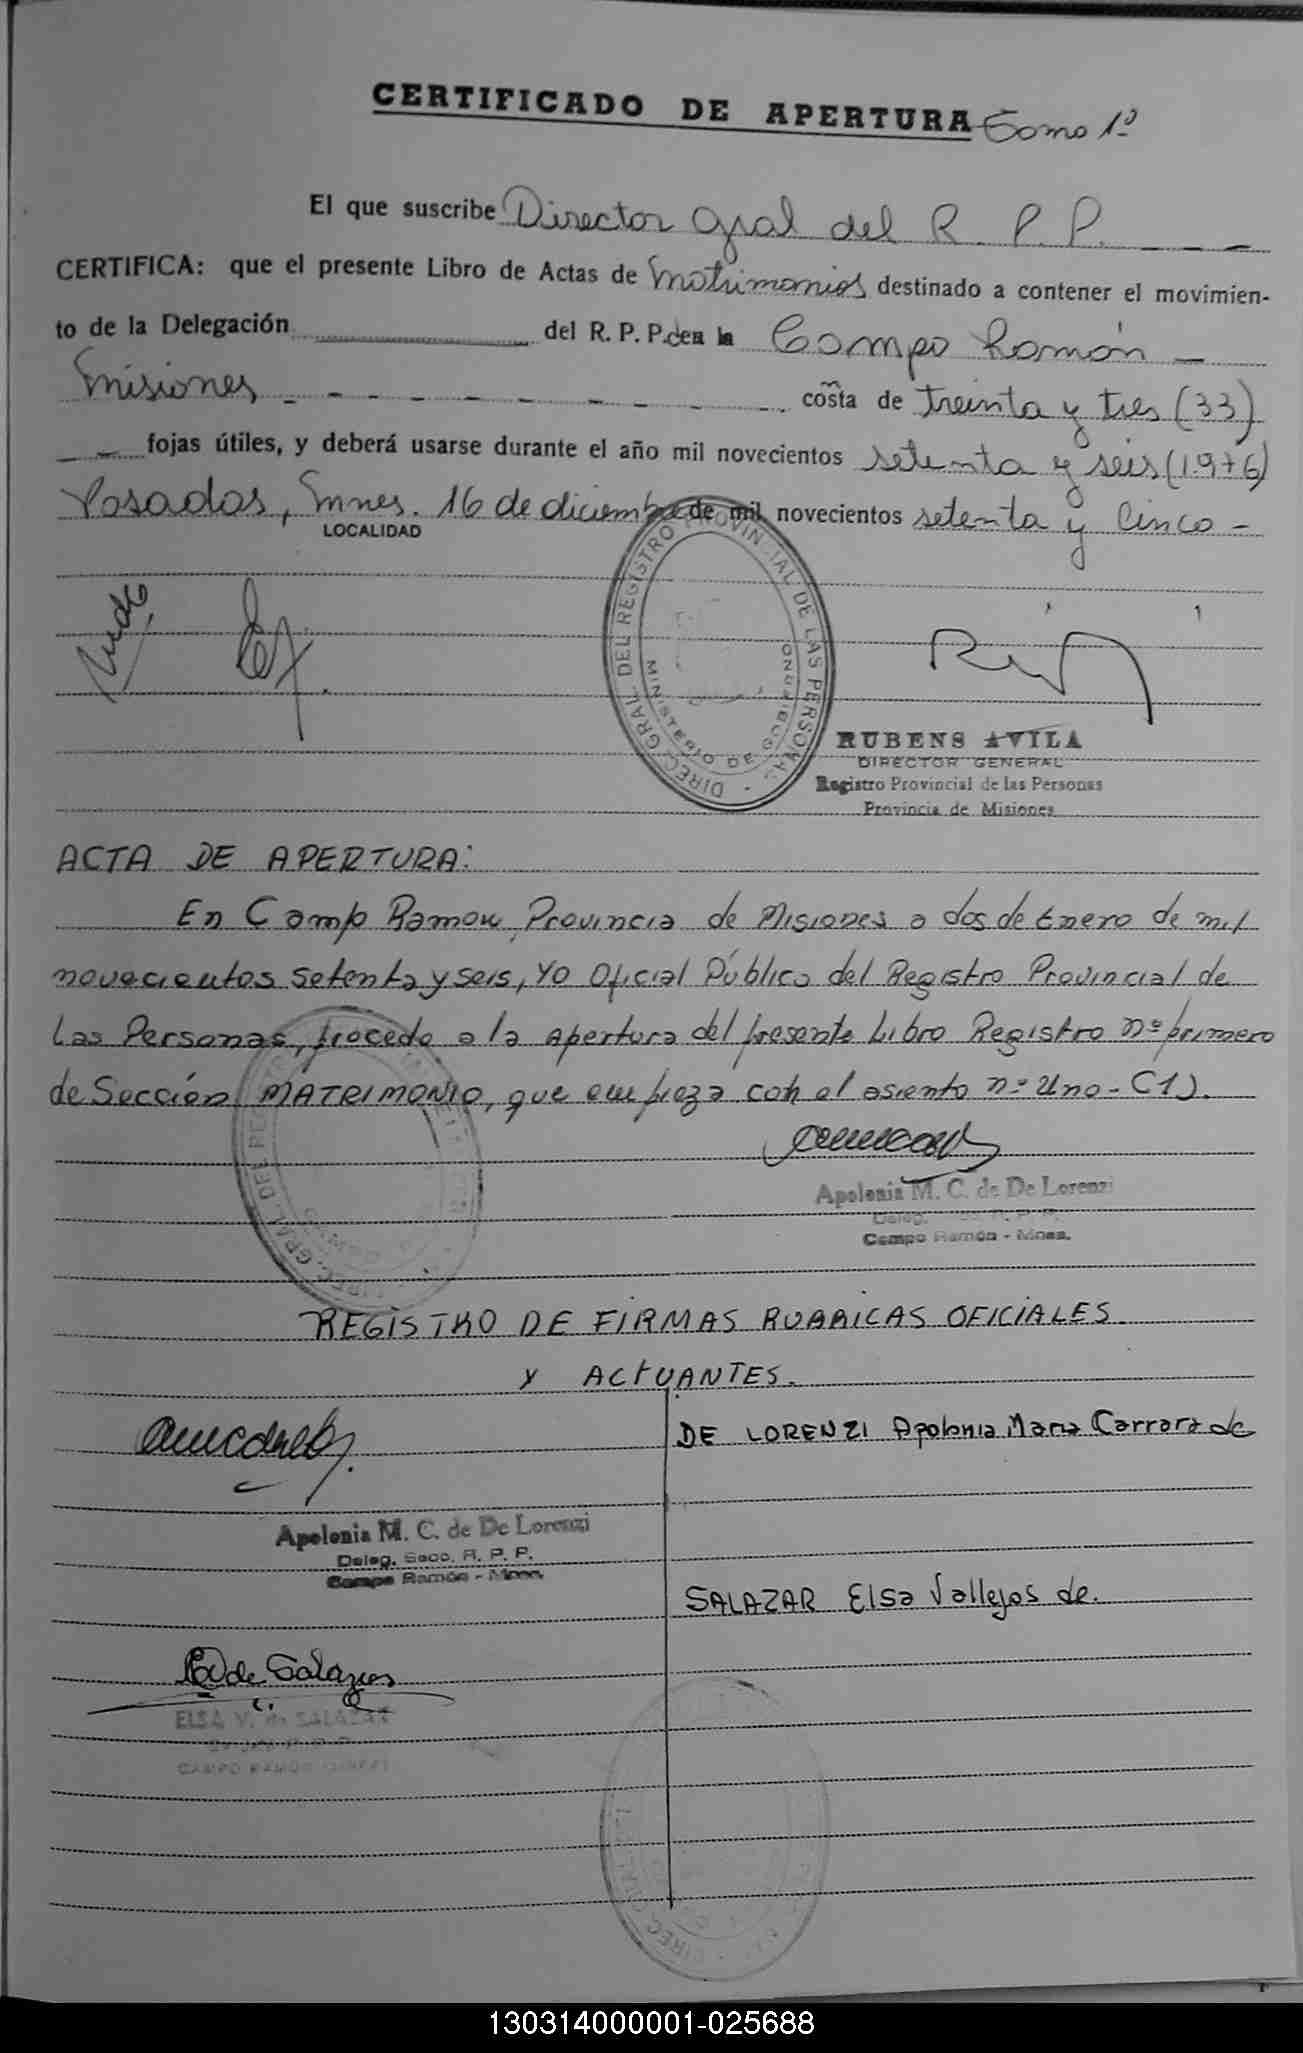 CERTIFICADO DE APERTURA Tomo 1º
El que suscribe Director Gral del R. P. P. _ _ _
CERTIFICA: que el presente Libro de Actas de Matrimonios destinado a contener el movimien-
to de la Delegación del R. P. P. de la Campo Ramón _
Misiones _ _ _ _ _ _ _ _ consta de treinta y tres (33)
_ _ fojas útiles, y deberá usarse durante el año mil novecientos setenta y seis (1976)
Posadas, Mnes. 16 de diciembre de mil novecientos setenta y cinco -
LOCALIDAD
DIREC. GRAL. DEL REGISTRO PROVINCIAL DE LAS PERSONAS
MINISTERIO DE GOBIERNO
RUBENS AVILA
DIRECTOR GENERAL
Registro Provincial de las Personas
Provincia de Misiones
ACTA DE APERTURA:
En Campo Ramon, Provincia de Misiones a dos de Enero de mil
novecientos setenta y seis, yo Oficial Público del Registro Provincial de
Las Personas, procedo a la apertura del presente Libro Registro nº primero
de Sección MATRIMONIO, que empieza con el asiento nº Uno-(1).
Apolonia M. C. de De Lorenzi
Campo Ramón - Mnes.
REGISTRO DE FIRMAS RUBRICAS OFICIALES
Y ACTUANTES.
DE LORENZI Apolonia Maria Carrara de
Apolonia M. C. de De Lorenzi
Deleg. Secc. R. P. P.
Campo Ramón - Mnes.
SALAZAR Elsa Vallejos de.
EV de Salazar
ELSA V. de SALAZAR
CAMPO RAMON
130314000001-025688